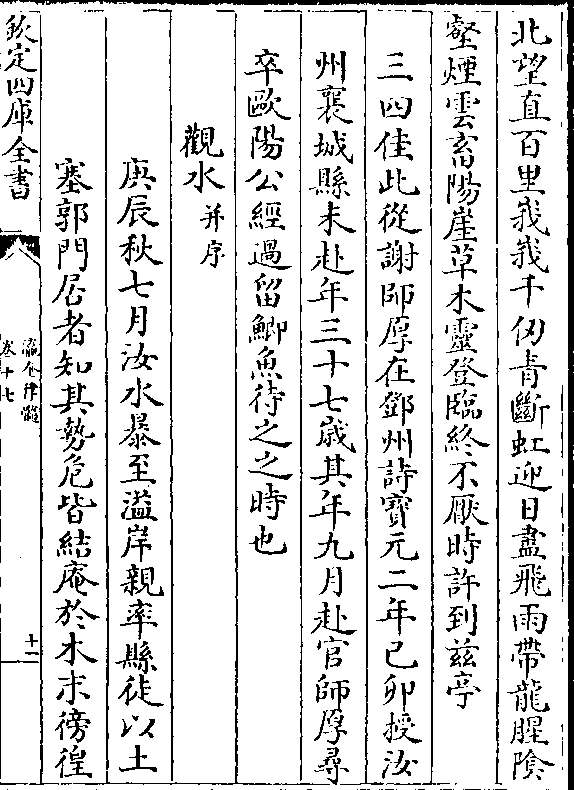 北望直百里峩峩千仞青斷虹迎日盡飛雨帶龍腥陰
壑煙雲畜陽崖草木靈登臨終不厭時許到兹亭
三四佳此從謝師厚在鄧州詩寶元二年己卯授汝
州襄城縣未赴年三十七歲其年九月赴官師厚尋
卒歐陽公經過留鯽魚待之之時也
觀水并序
庚辰秋七月汝水暴至溢岸親率縣徒以土
塞郭門居者知其勢危皆結庵於木末傍徨
欽定四庫全書
瀛奎律髓
卷十七
十二